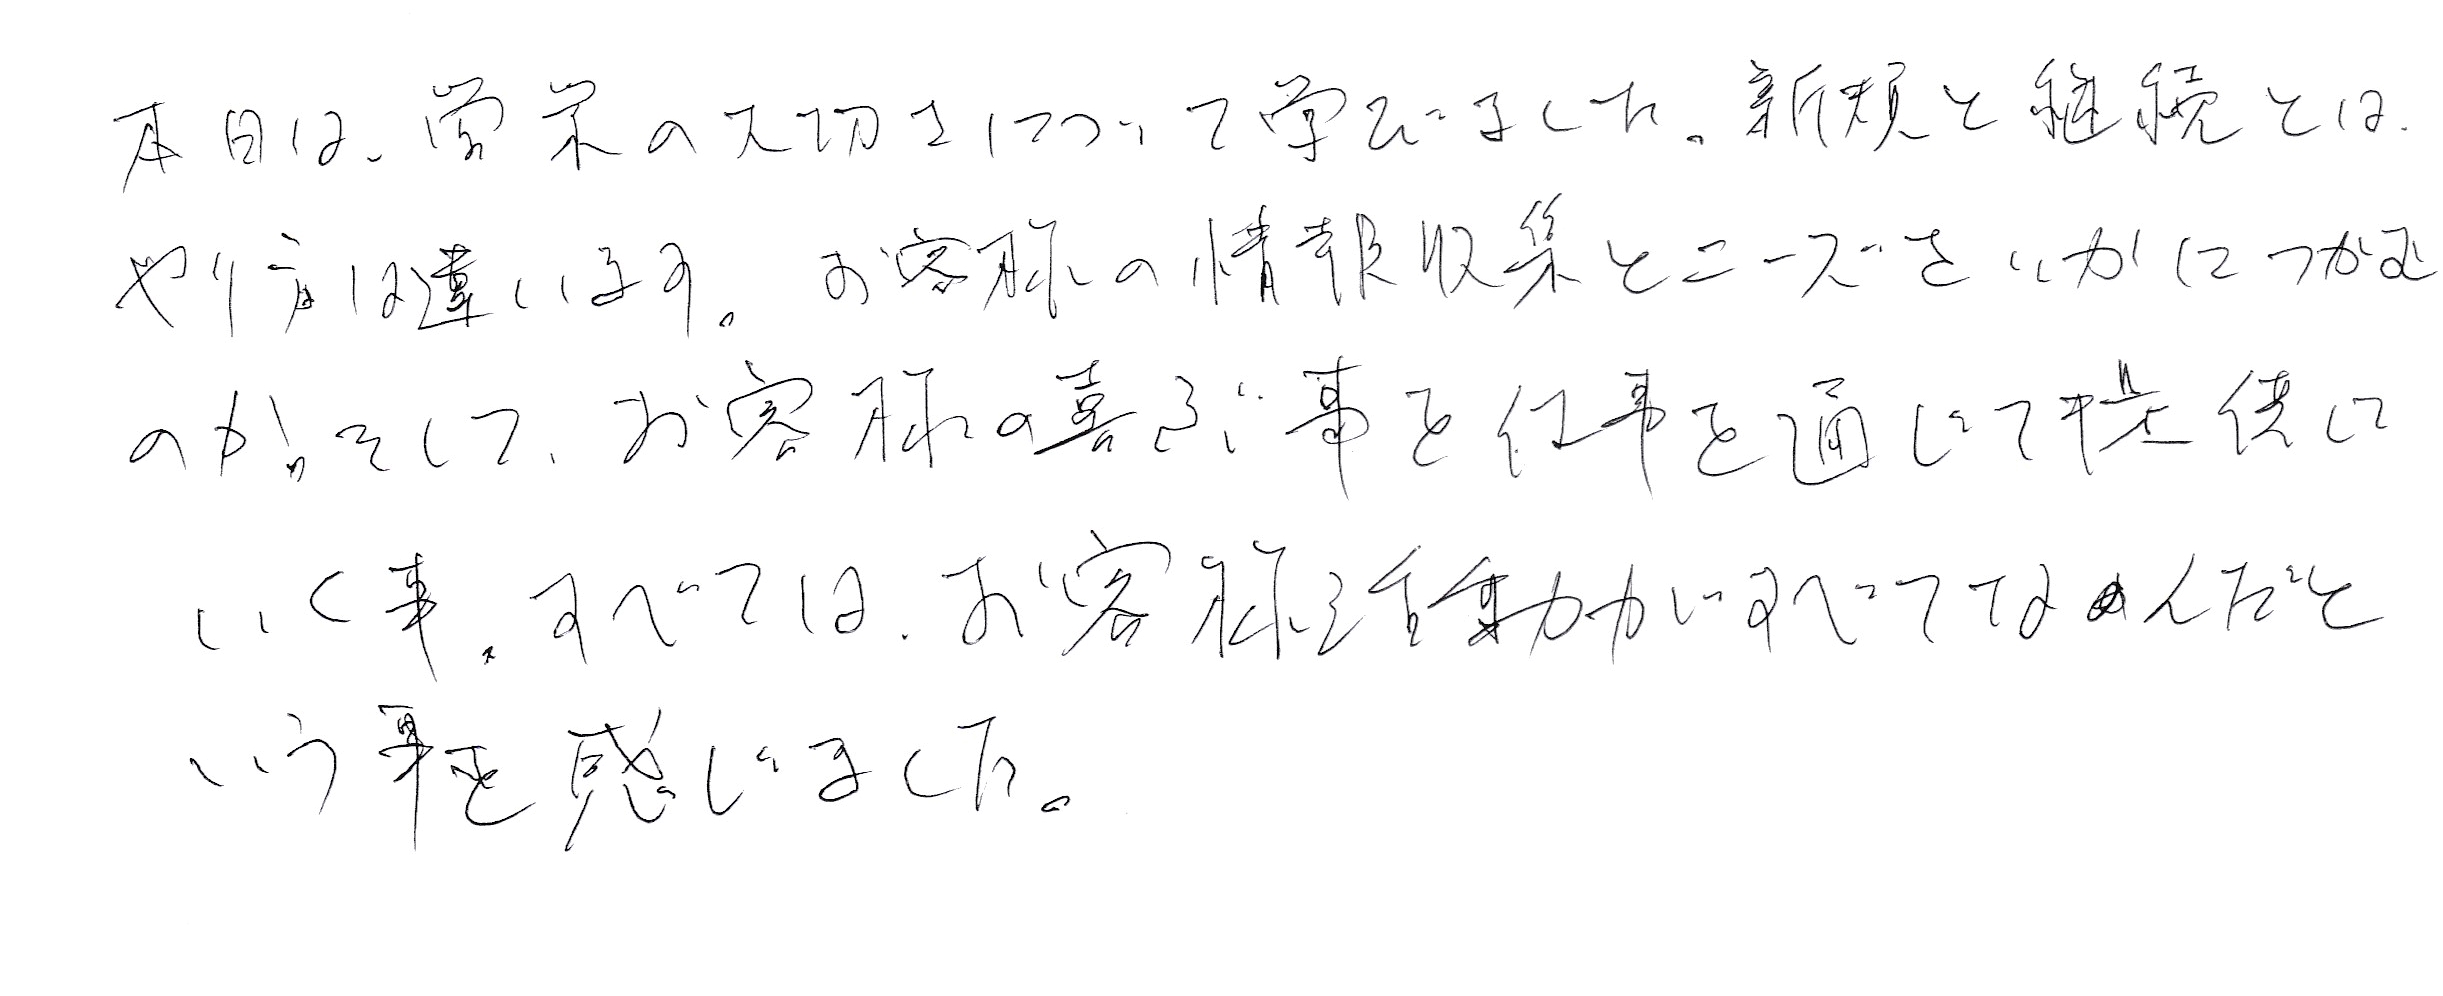 本日は、営業の大切さについて学びました。新規と継続とは、
やり方は違います。お客様の情報収集とニーズをいかにつかむ
のか。そして、お客様の喜ぶ事を仕事を通じて提供して
いく事。すべては、お客様活動がすべてなんだと
いう事を感じました。